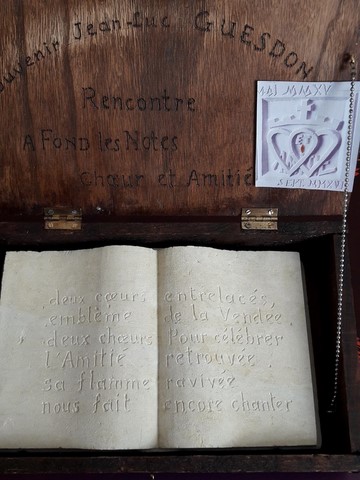 Souvenir Jean-Luc GUESDON
Rencontre
A FOND les NOTES
Chœur et Amitié
MAI MMXV
SEPT. MMXV
deux cœurs entrelacés,
emblème de la Vendée
deux chœurs Pour célébrer
L'Amitié retrouvée
sa flamme ravivée
nous fait encore chanter